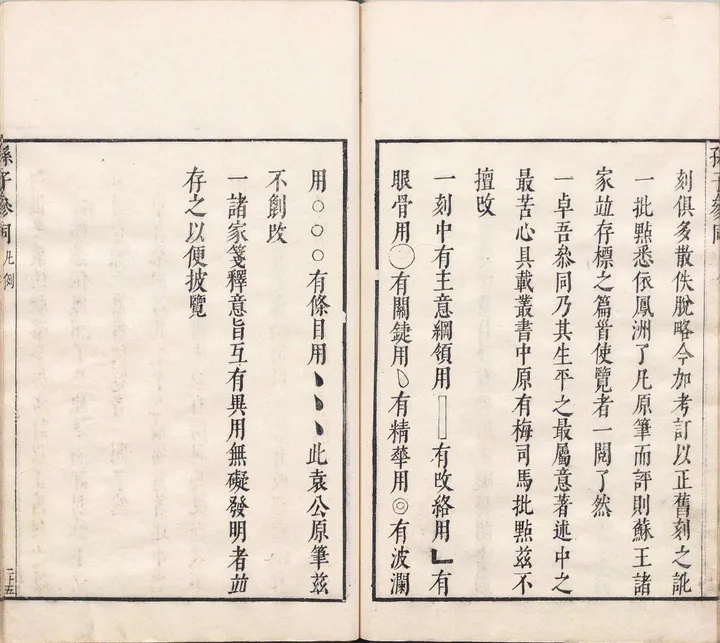 刻俱多散佚脫略今加考訂以正舊刻之訛
一批點悉依鳳洲了凡原筆而評則蘇王諸
家竝存標之篇首使覽者一閱了然
一卓吾叅同乃其生平之最屬意著述中之
最苦心具載叢書中原有梅司馬批點茲不
擅改
一刻中有主意綱領用▯有改絡用┗有
眼骨用◯有關鍵用﹆有精華用◎有波瀾
用○○○有條目用﹅﹅﹅此袁公原筆茲
不創改
一諸家箋釋意旨互有異用無礙發明者竝
存之以便披覽
孫子叅同
凡例
二十五
孫子叅同